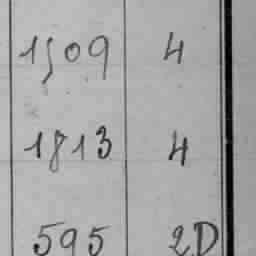 1509 4
1813 4
595 2D